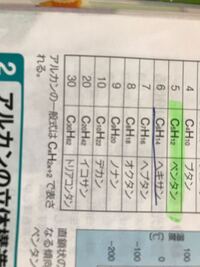 4 C₄H₁₀ ブタン
5 C₅H₁₂ ペンタン
6 C₆H₁₄ ヘキサン
7 C₇H₁₆ ヘプタン
8 C₈H₁₈ オクタン
9 C₉H₂₀ ノナン
10 C₁₀H₂₂ デカン
20 C₂₀H₄₂ イコサン
30 C₃₀H₆₂ トリアコンタン
アルカンの一般式は CₙH₂ₙ₊₂ で表さ
れる。
2 アルカンの立体構造
直鎖状の
なる傾向
ペンタン
温度
(℃)
100
0
-100
-200